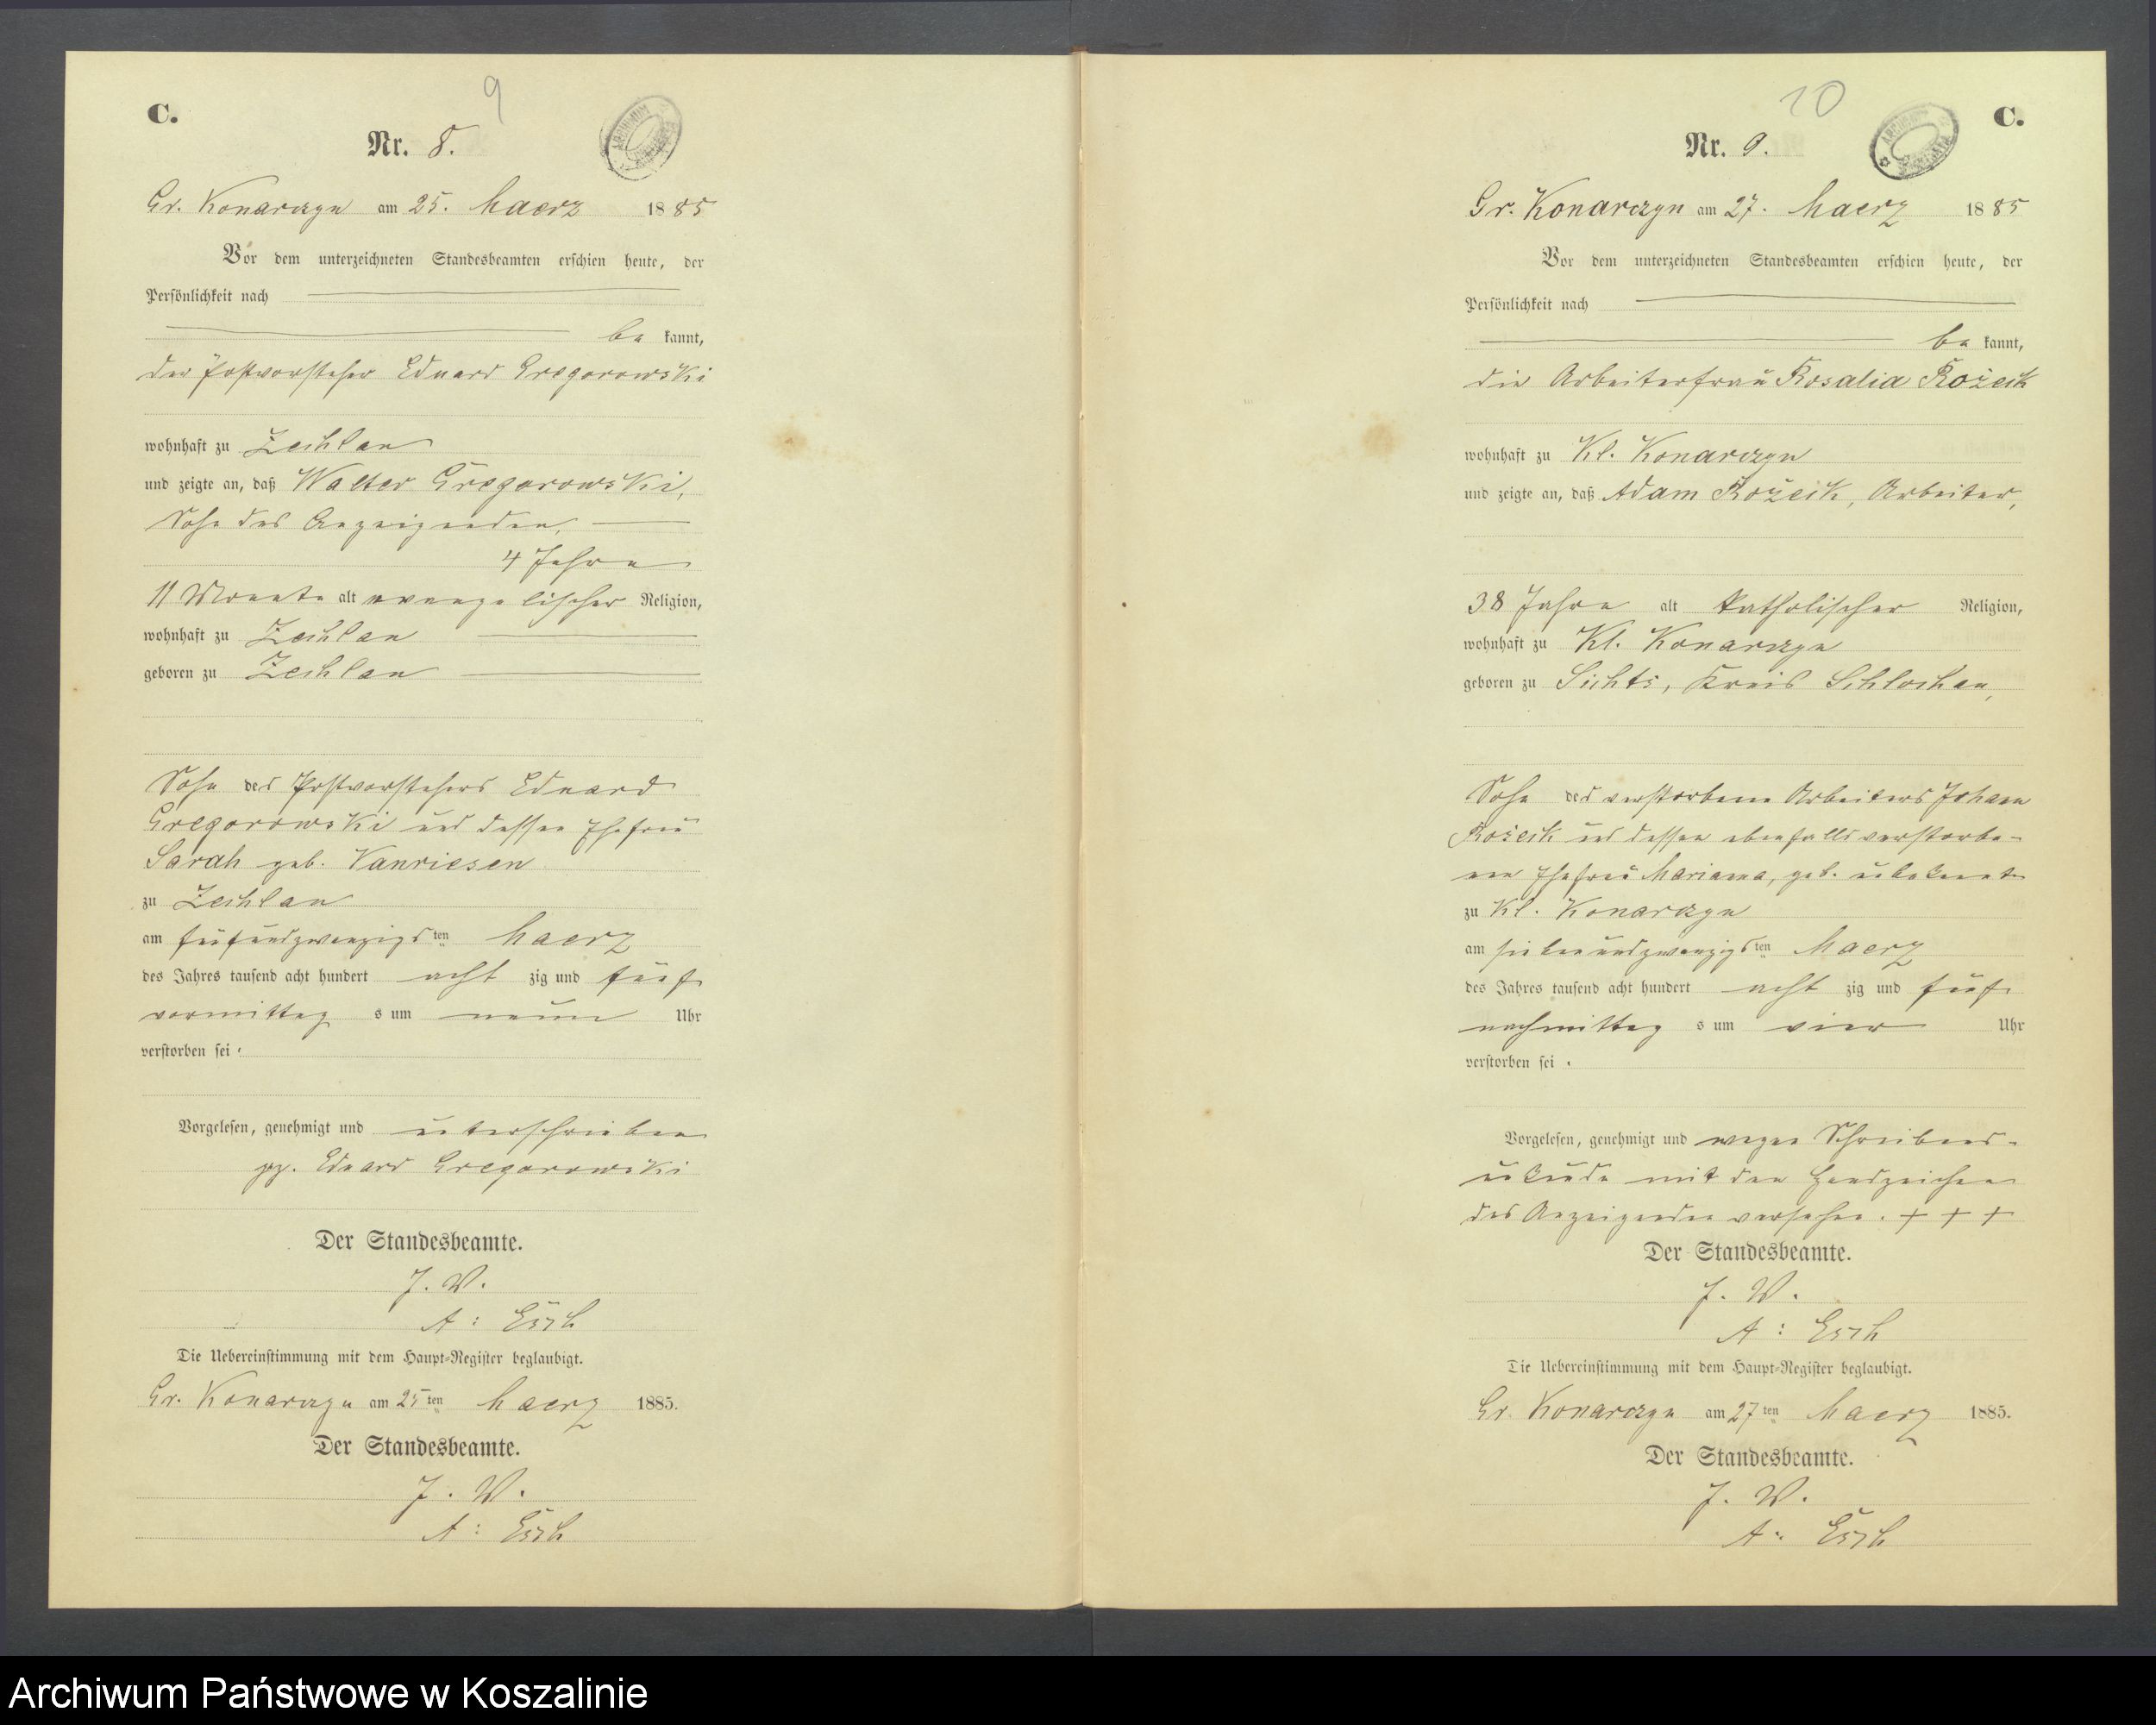 C.
9
Nr. 8.
Gr. Konarczyn am 25. Maerz 1885
Vor dem unterzeichneten Standesbeamten erschien heute, der
Persönlichkeit nach
be kannt,
der Postvorsteher Eduard Gregorowski
wohnhaft zu Zechlau
und zeigte an, daß Walter Gregorowski,
Sohn des Anzeigenden,
4 Jahre
11 Monate alt evangelischer Religion,
wohnhaft zu Zechlau
geboren zu Zechlau
Sohn des Postvorstehers Eduard
Gregorowski und dessen Ehefrau
Sarah geb. Vanriesen
zu Zechlau
am fünfundzwanzigsten Maerz
des Jahres tausend acht hundert acht zig und fünf
vormittags um neun Uhr
verstorben sei.
Vorgelesen, genehmigt und unterschrieben
gz. Eduard Gregorowski
Der Standesbeamte.
J. V.
A: Esch
Die Uebereinstimmung mit dem Haupt-Register beglaubigt.
Gr. Konarczyn am 25ten Maerz 1885.
Der Standesbeamte.
J. V.
A: Esch
10
C.
Nr. 9.
Gr. Konarczyn am 27. Maerz 1885
Vor dem unterzeichneten Standesbeamten erschien heute, der
Persönlichkeit nach
be kannt,
die Arbeiterfrau Rosalia Rożeik
wohnhaft zu Kl. Konarczyn
und zeigte an, daß Adam Rożeik, Arbeiter,
38 Jahre alt katholischer Religion,
wohnhaft zu Kl. Konarczyn
geboren zu Sichts, Kreis Schlochau,
Sohn des verstorbenen Arbeiters Johann
Rożeik und dessen ebenfalls verstorbe-
nen Ehefrau Marianna, geb. unbekannt
zu Kl. Konarczyn
am siebenundzwanzigsten Maerz
des Jahres tausend acht hundert acht zig und fünf
nachmittags um vier Uhr
verstorben sei.
Vorgelesen, genehmigt und wegen Schreibens-
unkunde mit den Handzeichen
des Anzeigenden versehen. + + +
Der Standesbeamte.
J. V.
A: Esch
Die Uebereinstimmung mit dem Haupt-Register beglaubigt.
Gr. Konarczyn am 27ten Maerz 1885.
Der Standesbeamte.
J. V.
A: Esch
Archiwum Państwowe w Koszalinie